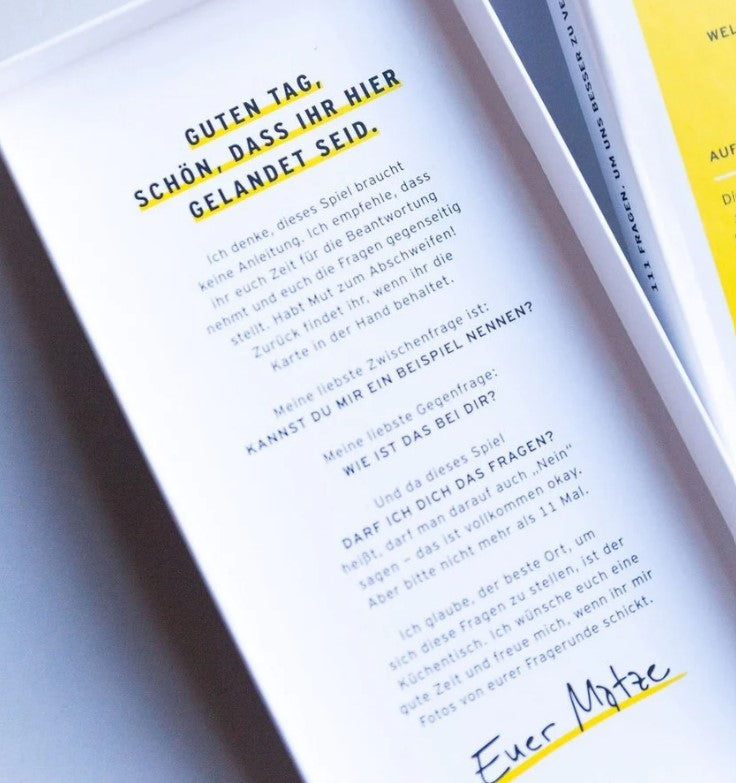 GUTEN TAG,
SCHÖN, DASS IHR HIER
GELANDET SEID.
Ich denke, dieses Spiel braucht
keine Anleitung. Ich empfehle, dass
ihr euch Zeit für die Beantwortung
nehmt und euch die Fragen gegenseitig
stellt. Habt Mut zum Abschweifen!
Zurück findet ihr, wenn ihr die
Karte in der Hand behaltet.
Meine liebste Zwischenfrage ist:
KANNST DU MIR EIN BEISPIEL NENNEN?
Meine liebste Gegenfrage:
WIE IST DAS BEI DIR?
Und da dieses Spiel
DARF ICH DICH DAS FRAGEN?
heißt, darf man darauf auch „Nein“
sagen – das ist vollkommen okay.
Aber bitte nicht mehr als 11 Mal.
Ich glaube, der beste Ort, um
sich diese Fragen zu stellen, ist der
Küchentisch. Ich wünsche euch eine
gute Zeit und freue mich, wenn ihr mir
Fotos von eurer Fragerunde schickt.
Euer Matze
111 FRAGEN, UM UNS BESSER ZU VE
WEL
AUF
Di